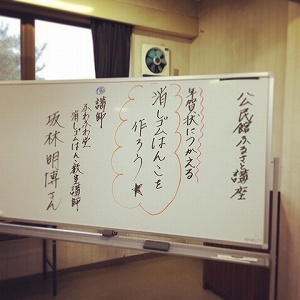 公民館ふるさと講座
年賀状につかえる
消しゴムはんこを
作ろう★
講師
ふわふわ堂
消しゴムはんこ教室講師
坂林明博さん